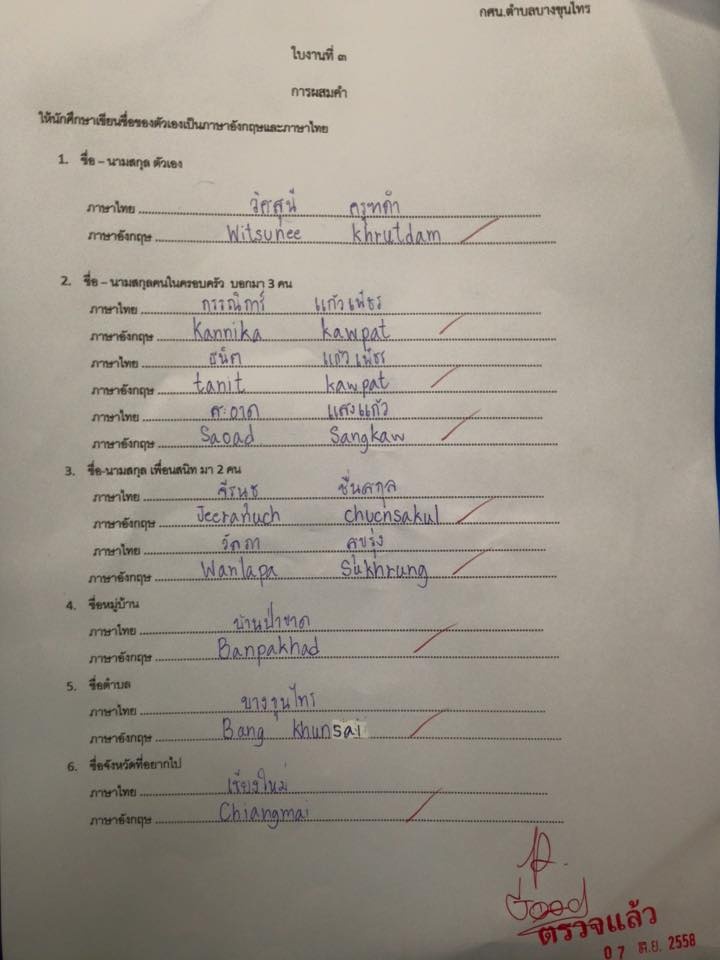 กศน.ตำบลบางขุนไทร
ใบงานที่ ๓
การผสมคำ
ให้นักศึกษาเขียนชื่อของตัวเองเป็นภาษาอังกฤษและภาษาไทย
1. ชื่อ – นามสกุล ตัวเอง
ภาษาไทย ครุฑดำ
ภาษาอังกฤษ Witsunee khrutdam
2. ชื่อ – นามสกุลคนในครอบครัว บอกมา 3 คน
ภาษาไทย กรรณิการ์ แก้วเพ็ชร
ภาษาอังกฤษ kannika kawpat
ภาษาไทย ธนิต แก้วเพ็ชร
ภาษาอังกฤษ tanit kawpat
ภาษาไทย สะอาด แสงแก้ว
ภาษาอังกฤษ Saoad Sangkaw
3. ชื่อ-นามสกุล เพื่อนสนิท มา 2 คน
ภาษาไทย จีรนุช ชื่นสกุล
ภาษาอังกฤษ Jeeranuch chuensakul
ภาษาไทย
ภาษาอังกฤษ Wanlapa Sukhrung
4. ชื่อหมู่บ้าน
ภาษาไทย บ้านป่าขาด
ภาษาอังกฤษ Banpakhad
5. ชื่อตำบล
ภาษาไทย บางขุนไทร
ภาษาอังกฤษ Bang khunsai
6. ชื่อจังหวัดที่อยากไป
ภาษาไทย เชียงใหม่
ภาษาอังกฤษ Chiangmai
Good
ตรวจแล้ว
07 2558